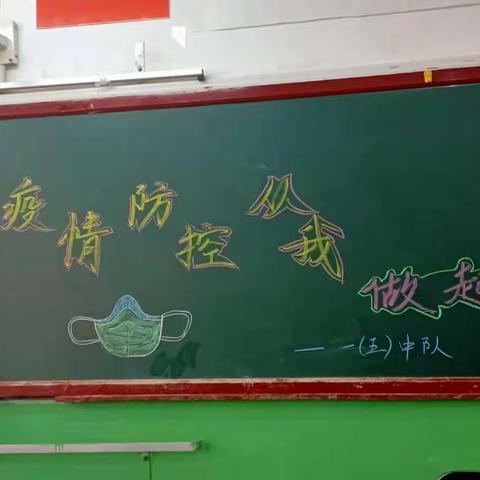 疫情防控从我做起
——一(五)中队